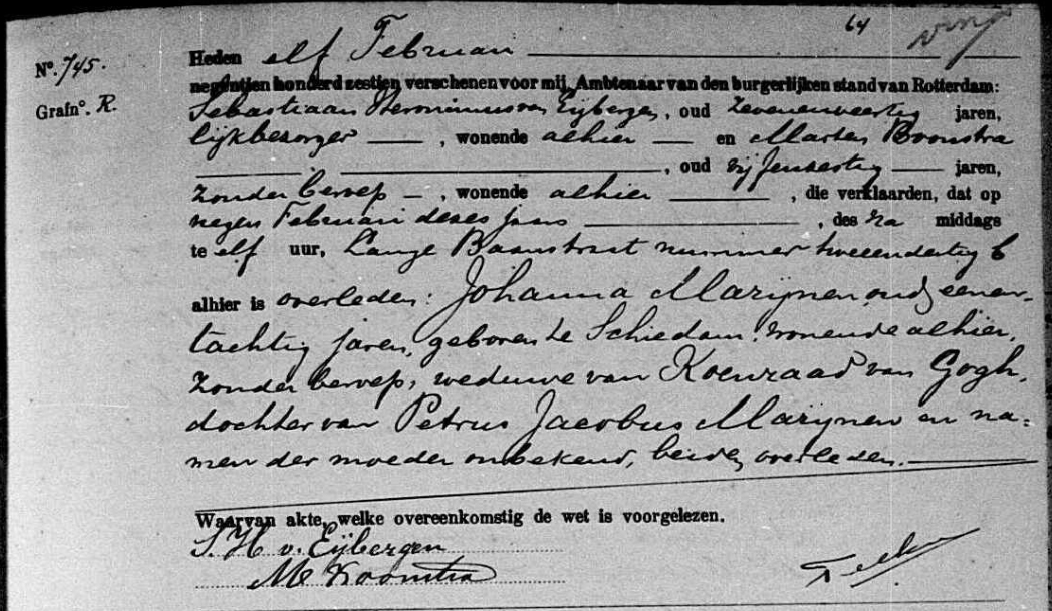 64
Nº. 745.
Grafnº. R.
Heden elf Februari
negentien honderd zestien verschenen voor mij, Ambtenaar van den burgerlijken stand van Rotterdam:
Sebastiaan Hieronimus van Eijbergen, oud zevenenveertig jaren,
lijkbezorger, wonende alhier en Marten Boonstra
, oud vijfenzestig jaren,
zonder beroep, wonende alhier, die verklaarden, dat op
negen Februari dezes jaars, des na middags
te elf uur, Lange Baanstraat nummer tweeendertig b
alhier is overleden: Johanna Marijnen, oud eenen-
tachtig jaren, geboren te Schiedam, wonende alhier,
zonder beroep, weduwe van Koenraad van Gogh,
dochter van Petrus Jacobus Marijnen en na=
men der moeder onbekend, beiden overleden.
Waarvan akte, welke overeenkomstig de wet is voorgelezen.
S. H v. Eijbergen
M Boonstra